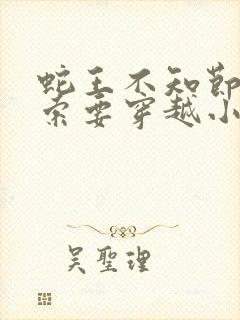 蛇王不知節
索要穿越小
吴聖理